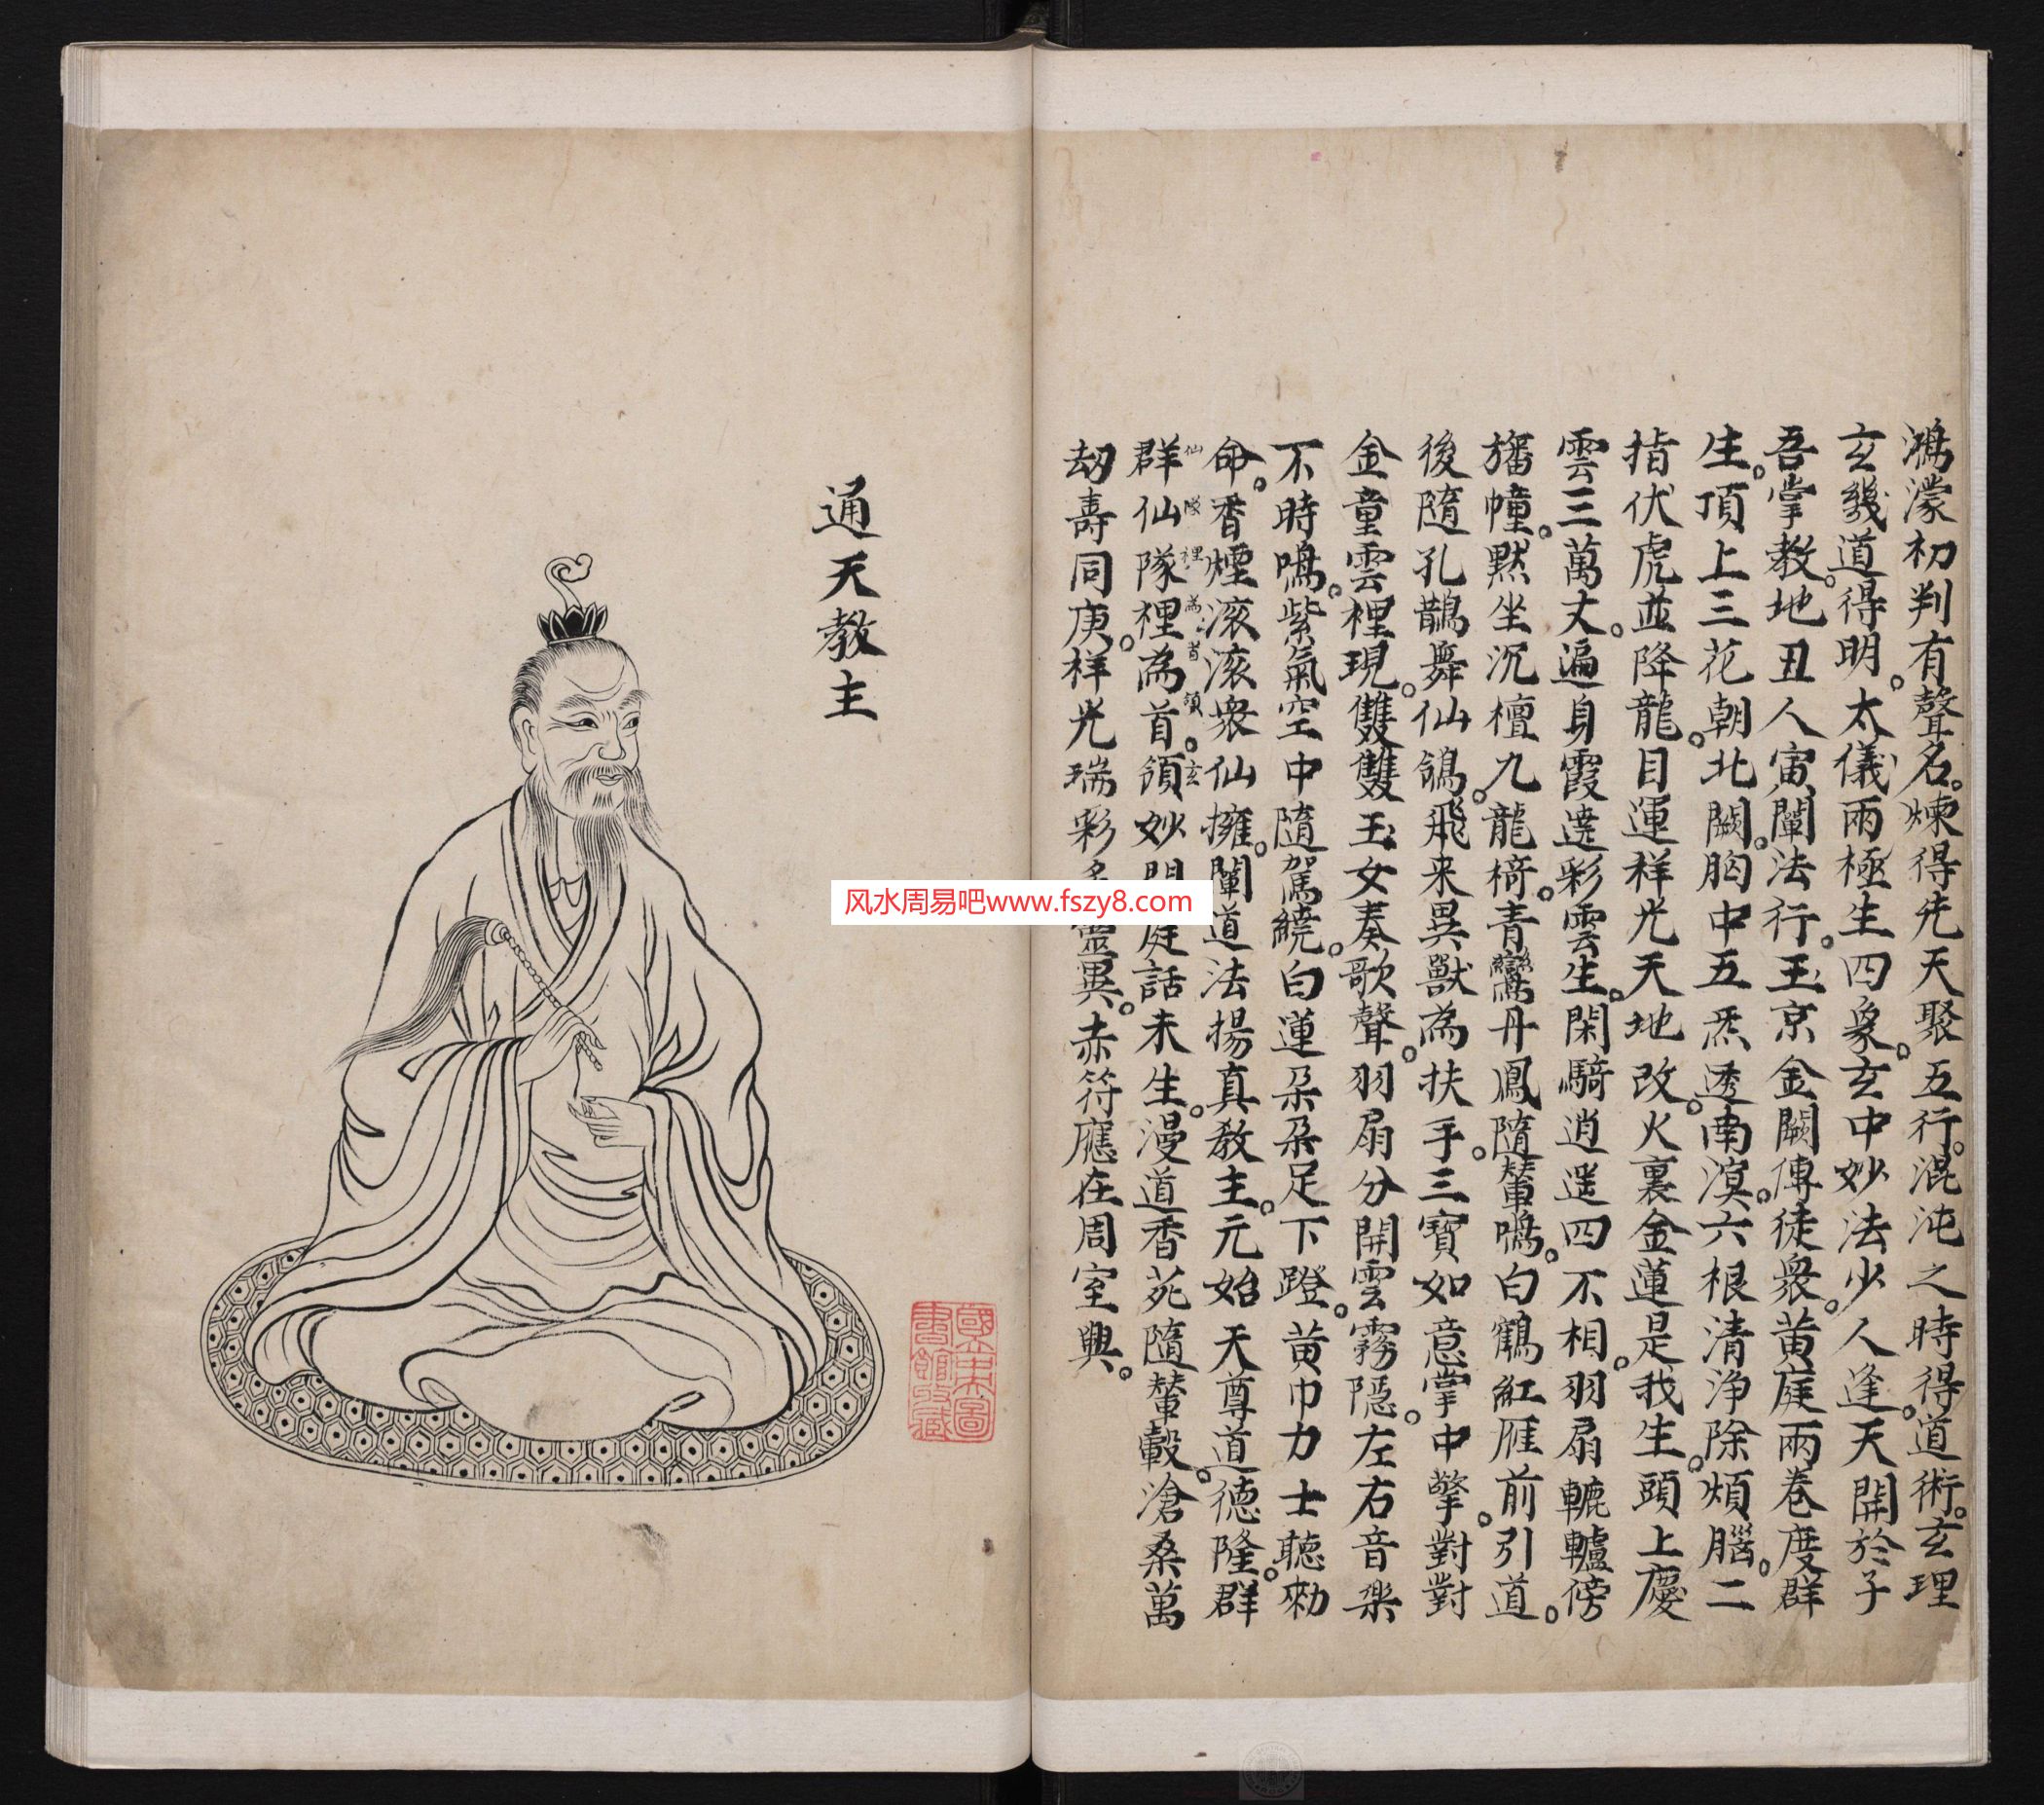 鴻濛初判有聲名。煉得先天聚五行。混沌之時得道術。玄理
玄幾道得明。太儀兩極生四象。玄中妙法少人逢。天開於子
吾掌教。地丑人寅闡法行。玉京金闕傳徒衆。黃庭兩卷度群
生。頂上三花朝北闕。胸中五炁透南溟。六根清浄除煩腦。二
指伏虎並降龍。目運祥光天地改。火裏金蓮是我生。頭上慶
雲三萬丈。遍身霞遶彩雲生。閑騎逍遥四不相。羽扇轆轤傍
旛幢。默坐沉檀九龍椅。青鸞丹鳳隨輦鳴。白鶴紅雁前引道。
後隨孔鵲舞仙鴿。飛来異獸為扶手。三寶如意掌中擎。對對
金童雲裡現。雙雙玉女奏歌聲。羽扇分開雲霧隱。左右音楽
不時鳴。紫氣空中隨駕繞。白蓮朵朵足下蹬。黄巾力士聴勅
命。香煙滚滚衆仙擁。闡道法揚真教主。元始天尊道德隆。群
仙隊裡為首領玄
群仙隊裡為首。領妙 庭話未生。漫道香苑隨輦轂。滄桑萬
刼壽同庚。祥光瑞彩 靈異。赤符應在周室興。
通天教主
國家圖書館收藏
风水周易吧www.fszy8.com